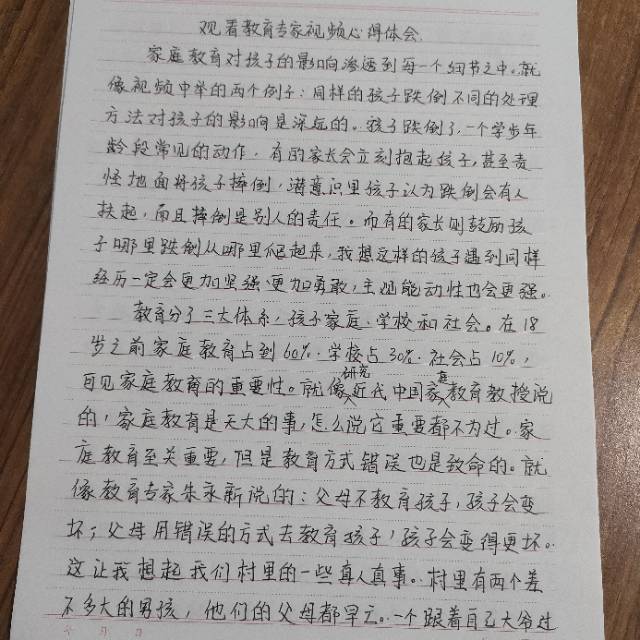 观看教育专家视频心得体会
家庭教育对孩子的影响渗透到每一个细节之中。就
像视频中举的两个例子：同样的孩子跌倒不同的处理
方法对孩子的影响是深远的。孩子跌倒了，一个学步年
龄段常见的动作，有的家长会立刻抱起孩子，甚至责
怪地面将孩子摔倒，潜意识里孩子认为跌倒会有人
扶起，而且摔倒是别人的责任。而有的家长则鼓励孩
子哪里跌倒从哪里爬起来，我想这样的孩子遇到同样
经历一定会更加坚强、更加勇敢，主观能动性也会更强。
教育分了三大体系，孩子家庭、学校和社会。在18
岁之前家庭教育占到60%、学校占30%、社会占10%，
可见家庭教育的重要性。就像研究近代中国家庭教育教授说
的，家庭教育是天大的事，怎么说它重要都不为过。家
庭教育至关重要，但是教育方式错误也是致命的。就
像教育专家朱永新说的：父母不教育孩子，孩子会变
坏；父母用错误的方式去教育孩子，孩子会变得更坏。
这让我想起我们村里的一些真人真事。村里有两个差
不多大的男孩，他们的父母都早亡。一个跟着自己大爷过
年 月 日